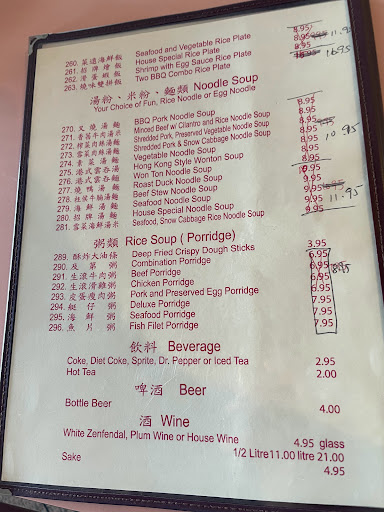 260. 菜遠海鮮飯 Seafood and Vegetable Rice Plate 8.95
261. 招牌燴飯 House Special Rice Plate 8.95 11.95
262. 滑蛋蝦飯 Shrimp with Egg Sauce Rice Plate 8.95
263. 燒味雙拼飯 Two BBQ Combo Rice Plate 16.95
湯粉、米粉、麵類 Noodle Soup
Your Choice of Fun, Rice Noodle or Egg Noodle
270. 叉燒湯麵 BBQ Pork Noodle Soup 8.95
271. 香茜牛肉湯米 Minced Beef w/ Cilantro and Rice Noodle Soup 8.95
272. 榨菜肉絲湯麵 Shredded Pork, Preserved Vegetable Noodle Soup 8.95
273. 雪菜肉絲湯麵 Shredded Pork & Snow Cabbage Noodle Soup 8.95
274. 素菜湯麵 Vegetable Noodle Soup 8.95 10.95
275. 港式雲吞湯 Hong Kong Style Wonton Soup 8.95
276. 港式雲吞麵 Won Ton Noodle Soup 8.95
277. 燒鴨湯麵 Roast Duck Noodle Soup 9.95
278. 柱候牛腩湯麵 Beef Stew Noodle Soup 9.95
279. 海鮮湯麵 Seafood Noodle Soup 9.95
280. 招牌湯麵 House Special Noodle Soup 9.95 11.95
281. 雪菜海鮮湯米 Seafood, Snow Cabbage Rice Noodle Soup 9.95
粥類 Rice Soup ( Porridge)
289. 酥炸大油條 Deep Fried Crispy Dough Sticks 3.95
290. 及第粥 Combination Porridge 6.95
291. 生滾牛肉粥 Beef Porridge 6.95 8.95
292. 生滾滑雞粥 Chicken Porridge 6.95
293. 皮蛋瘦肉粥 Pork and Preserved Egg Porridge 6.95
294. 艇仔粥 Deluxe Porridge 7.95
295. 海鮮粥 Seafood Porridge 7.95
296. 魚片粥 Fish Filet Porridge 7.95
飲料 Beverage
Coke, Diet Coke, Sprite, Dr. Pepper or Iced Tea 2.95
Hot Tea 2.00
啤酒 Beer
Bottle Beer 4.00
酒 Wine
White Zenfendal, Plum Wine or House Wine 4.95 glass
1/2 Litre11.00 litre 21.00
Sake 4.95